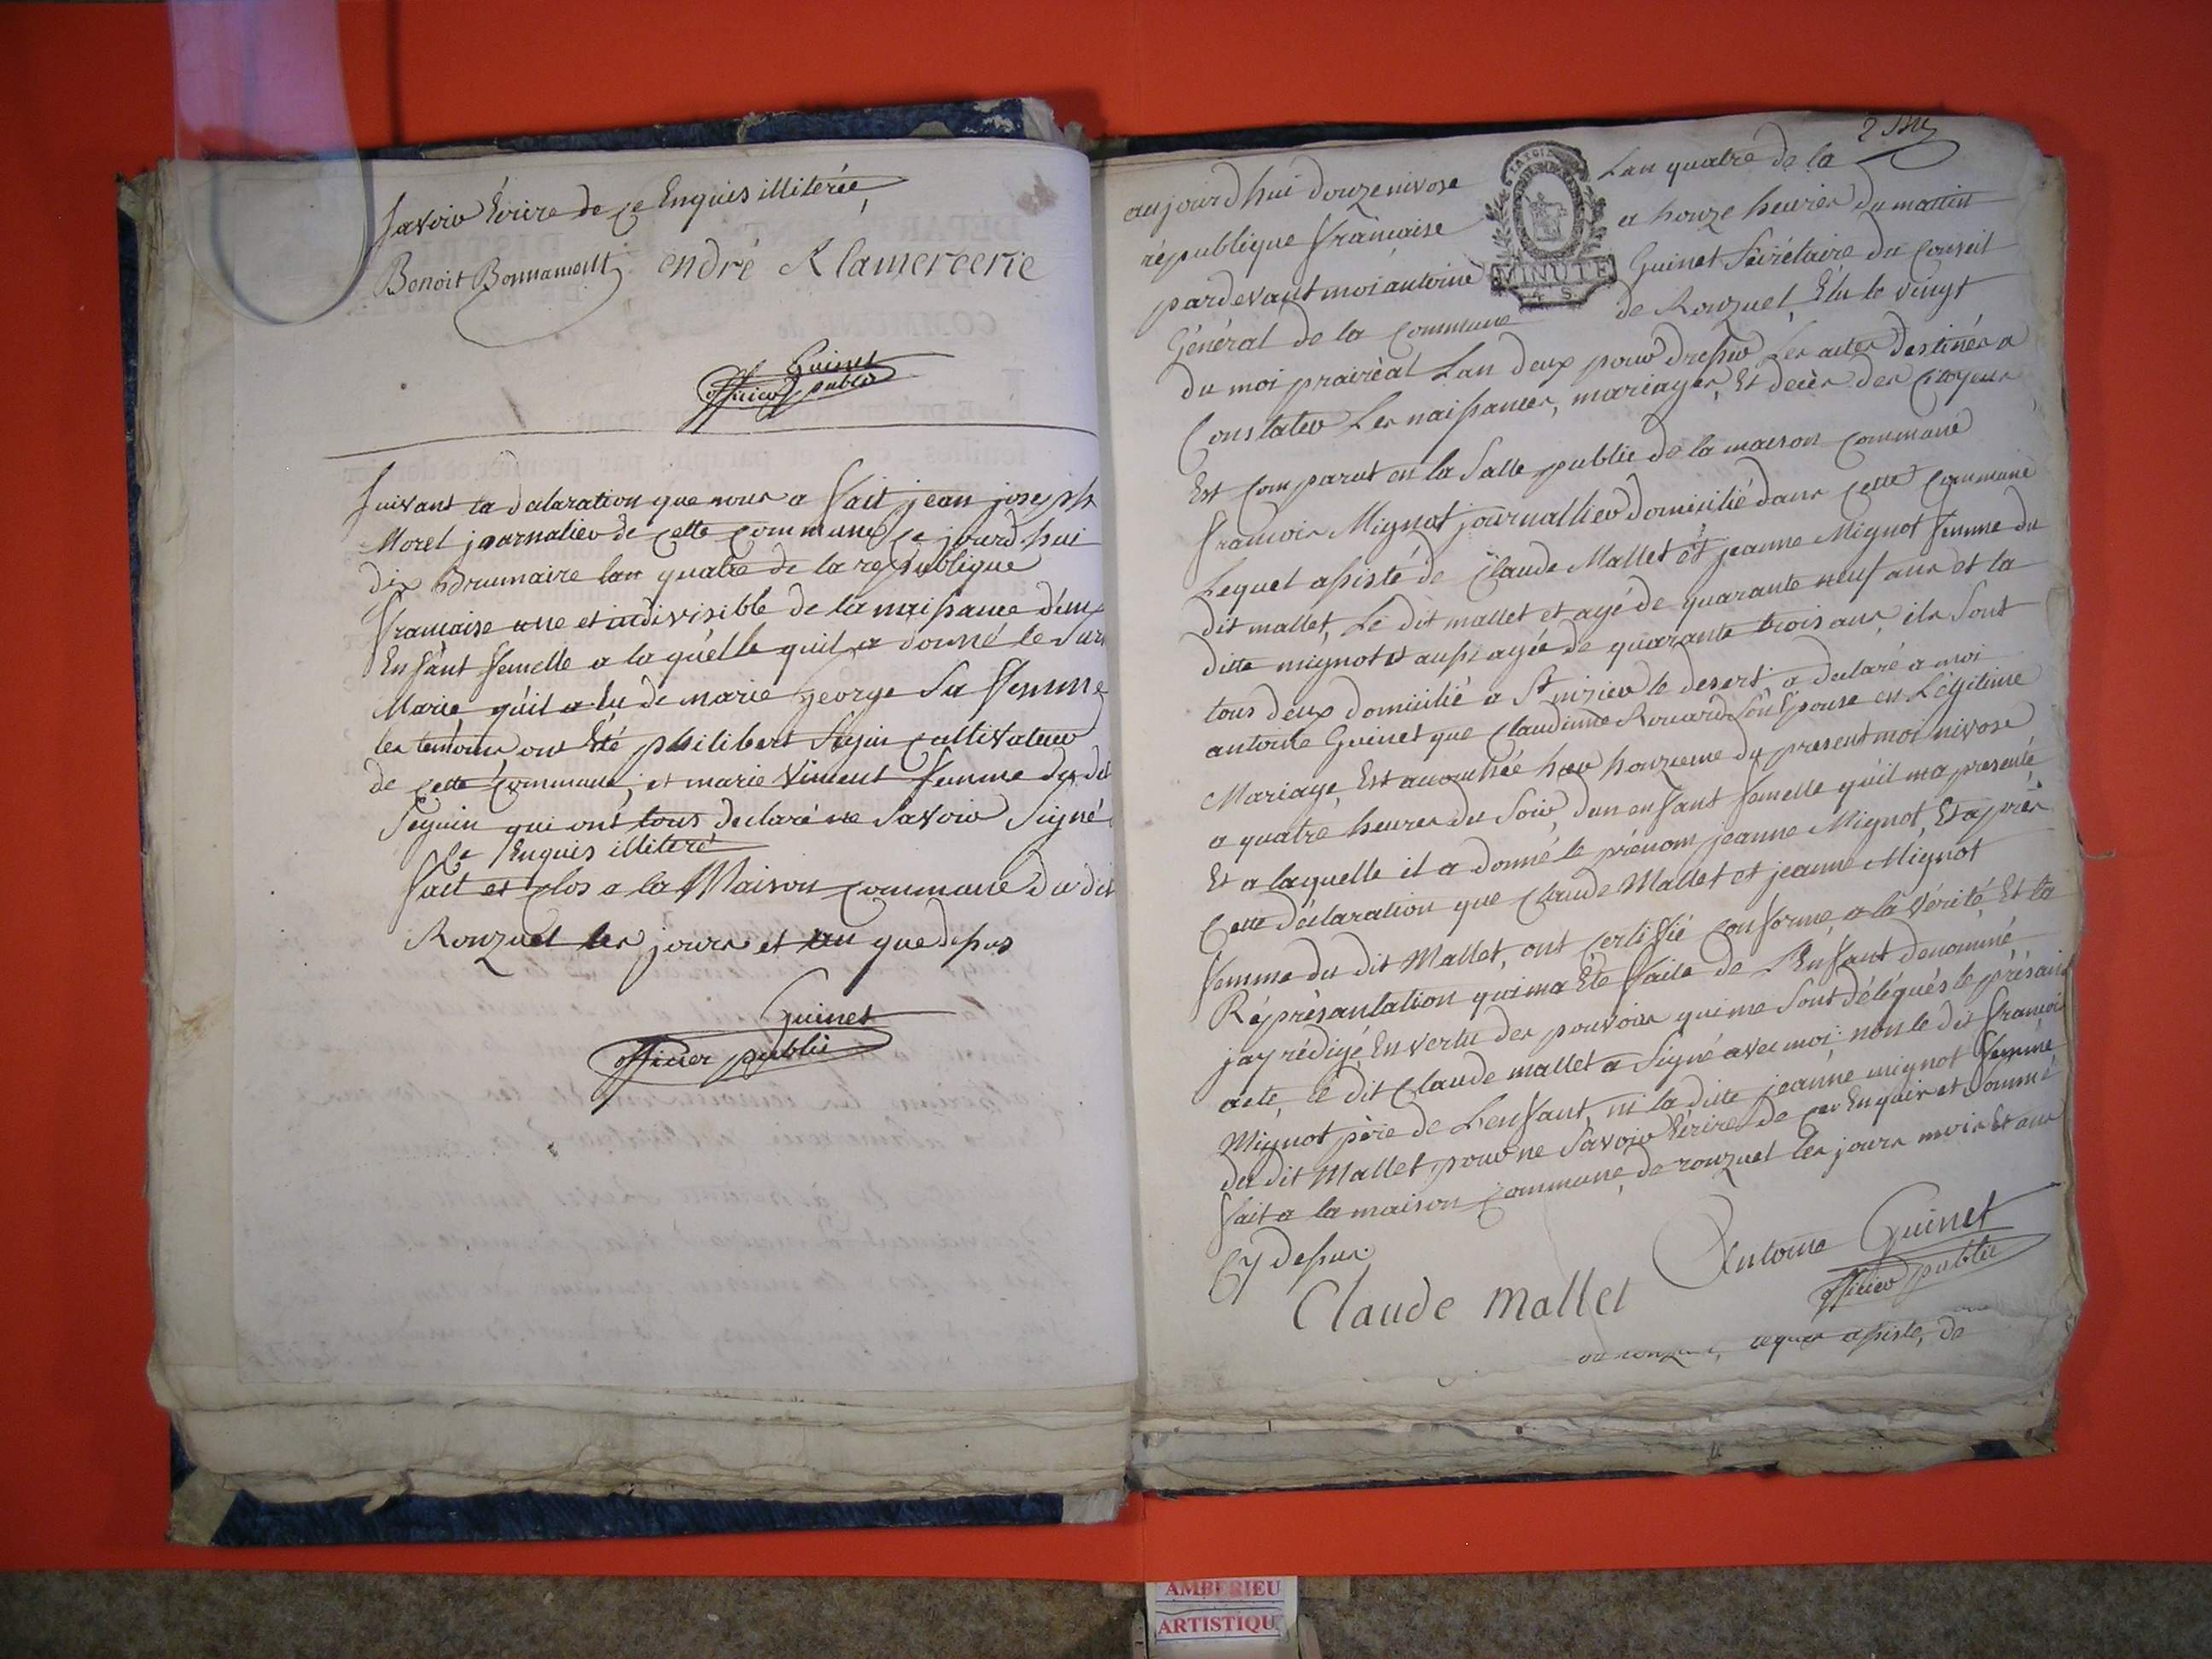 savoir Ecrire de ce Enquis illiterée,
Benoit Bonnamour endré Klamercerie
Guinet
officier public
suivant la declaration que nous a fait jean joseph
Morel journalier de cette commune ce jourd'hui
dix Brumaire lan quatre de la republique
francaise une et indivisible de la naissance d'un
Enfant femelle a la quelle quil a donné le
Marie, quil a eu de marie george sa femme
les temoins ont Eté philibert Seguin cultivateur
de cette commune, et marie Vincent femme du dit
Seguin qui ont tous declaré ne savoir signé
de Enquis illiteré
fait et clos a la Maison commune du dit
Ronzuel les jours et an que dessus
Guinet
officier public
2
aujourd'hui douze nivose Lan quatre de la
république francaise a honze heures du mattin
pardevant moi antoine Guinet Secrétaire du Conseil
Général de la Commune de Ronzuel, Elu le vingt
du moi prairéal Lan deux pour dresser Les actes destinés a
Constater Les naissances, mariages, Et deces des Citoyens
Est comparut en la salle public de la maison commune
francois Mignot journallier domicilié dans cette commune
Lequel assisté de Claude Mallet et jeanne Mignot femme du
dit mallet, Le dit mallet et agé de quarante neuf ans et la
ditte mignot et aussi agée de quarante trois ans, ils sont
tous deux domicilié a St nizier le desert a declaré a moi
antoine Guinet que Claudinne Rouard son Epouse en Légitime
Mariage, Est accouchée hier honzieme du present moi nivose
a quatre heures du soir, dun enfant femelle quil ma presenté
Et a laquelle il a donné le prénom jeanne Mignot, Et après
Cette déclaration que Claude Mallet et jeanne Mignot
femme du dit Mallet, ont certiffié conforme a la vérité, Et la
Réprésantation qui ma Eté faite de L'enfant denommé
jay rédigé En vertu des pouvoirs qui me sont délégués le présant
acte, le dit Claude mallet a signé avec moi, non le dit francois
Mignot père de L'enfant, ni la ditte jeanne mignot femme
du dit Mallet, pour ne savoir Ecrire de ce Enquis et sommé
fait a la maison commune de ronzuel les jours mois Et an
Cy dessus.
Antoine Guinet
officier public
Claude Mallet
lequel assisté, de
MINUTE
4 S
AMBERIEU
ARTISTIQU